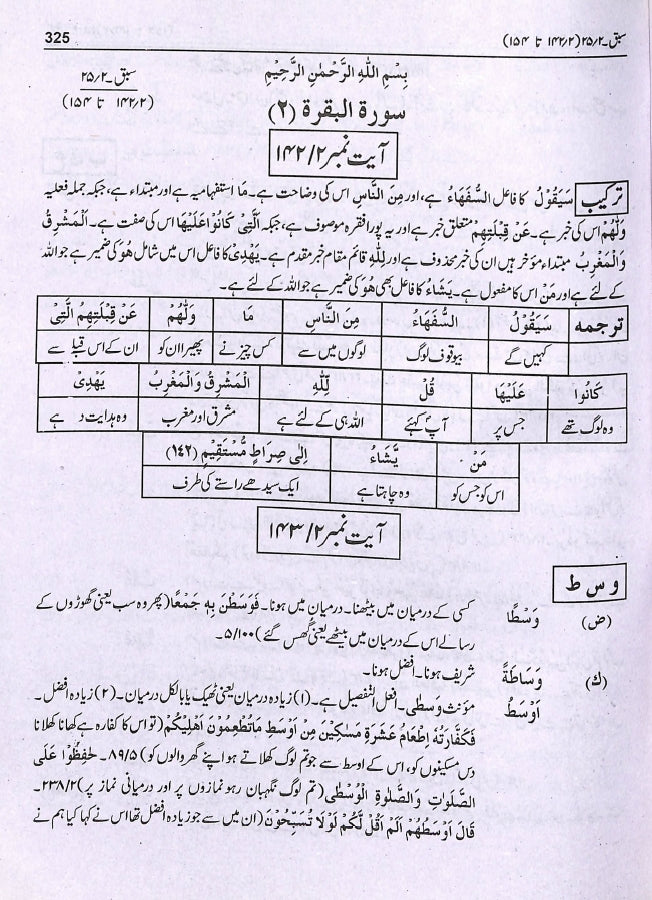 325
سبق۔۲۵/۲ (۱۴۲/۲ تا ۱۵۴)
سبق۔۲۵/۲
(۱۴۲/۲ تا ۱۵۴)
بِسْمِ اللّٰهِ الرَّحْمٰنِ الرَّحِيْمِ
سورة البقرة (۲)
آیت نمبر ۱۴۲/۲
ترکیب سَيَقُوْلُ کا فاعل السُّفَهَاءُ ہے، اور مِنَ النَّاسِ اس کی وضاحت ہے۔ مَا استفہامیہ ہے اور مبتداء ہے، جبکہ جملہ فعلیہ
وَلّٰهُمْ اس کی خبر ہے۔ عَنْ قِبْلَتِهِمْ متعلق خبر ہے اور یہ پورا فقرہ موصوف ہے، جبکہ الَّتِىْ كَانُوْا عَلَيْهَا اس کی صفت ہے۔ اَلْمَشْرِقُ
وَالْمَغْرِبُ مبتداء مؤخر ہیں ان کی خبر محذوف ہے اور لِلّٰهِ قائم مقام خبر مقدم ہے۔ يَهْدِىْ کا فاعل اس میں شامل هُوَ کی ضمیر ہے جو اللہ
کے لئے ہے اور مَنْ اس کا مفعول ہے۔ يَشَاءُ کا فاعل بھی هُوَ کی ضمیر ہے جو اللہ کے لئے ہے۔
ترجمہ سَيَقُوْلُ السُّفَهَاءُ مِنَ النَّاسِ مَا وَلّٰهُمْ عَنْ قِبْلَتِهِمُ الَّتِىْ
کہیں گے بیوقوف لوگ لوگوں میں سے کس چیز نے پھیرا ان کو ان کے اس قبلہ سے
كَانُوْا عَلَيْهَا قُلْ لِّلّٰهِ الْمَشْرِقُ وَالْمَغْرِبُ يَهْدِىْ
وہ لوگ تھے جس پر آپؐ کہئے اللہ ہی کے لئے ہے مشرق اور مغرب وہ ہدایت د ہے
مَنْ يَّشَاءُ اِلٰى صِرَاطٍ مُّسْتَقِيْمٍ (۱۴۲)
اس کو جس کو وہ چاہتا ہے ایک سیدھے راستے کی طرف
آیت نمبر ۱۴۳/۲
و س ط
(ض) وَسْطًا کسی کے درمیان میں بیٹھنا۔ درمیان میں ہونا۔ فَوَسَطْنَ بِهٖ جَمْعًا (پھر وہ سب یعنی گھوڑوں کے
رسالے اس کے درمیان میں بیٹھے یعنی گھس گئے) ۵/۱۰۰۔
(ك) وَسَاطَةً شریف ہونا۔ افضل ہونا۔
اَوْسَطُ مؤنث وسطی۔ افعل التفصیل ہے۔ (۱) زیادہ درمیان یعنی ٹھیک یا بالکل درمیان۔ (۲) زیادہ افضل۔
فَكَفَّارَتُهٗ اِطْعَامُ عَشَرَةِ مَسٰكِيْنَ مِنْ اَوْسَطِ مَاتُطْعِمُوْنَ اَهْلِيْكُمْ (تو اس کا کفارہ ہے کھانا کھلانا
دس مسکینوں کو، اس کے اوسط سے جو تم لوگ کھلاتے ہو اپنے گھر والوں کو) ۸۹/۵۔ حٰفِظُوْا عَلَى
الصَّلَوٰتِ وَالصَّلٰوةِ الْوُسْطٰى (تم لوگ نگہبان رہو نمازوں پر اور درمیانی نماز پر) ۲۳۸/۲۔
قَالَ اَوْسَطُهُمْ اَلَمْ اَقُلْ لَّكُمْ لَوْ لَا تُسَبِّحُوْنَ (ان میں سے جو زیادہ افضل تھا اس نے کہا کیا ہم نے